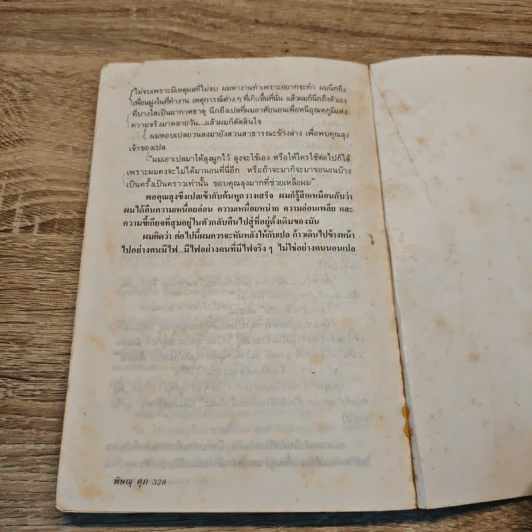 ไม่จบเพราะมีเหตุผลที่ไม่จบ ผมหางานทำเพราะอยากจะทำ ผมนึกถึง
เพื่อนฝูงในที่ทำงาน เหตุการณ์ต่าง ๆ ที่เกิดขึ้นที่นั่น แล้วผมก็นึกถึงตัวเอง
ที่บางใสเป็นอากาศธาตุ นึกถึงเปลที่ผมอาศัยนอนเพื่อหนีอุณหภูมิแห่ง
ความจริงมาหลายวัน...แล้วผมก็ตัดสินใจ
ผมหอบเปลยวนลงมายังสวนสาธารณะข้างล่าง เพื่อพบคุณลุง
เจ้าของเปล
“ผมเอาเปลมาให้ลุงผูกไว้ ลุงจะใช้เอง หรือให้ใครใช้ต่อไปก็ได้
เพราะผมคงจะไม่ได้มานอนที่นี่อีก หรือถ้าจะมาก็จะมาขอนอนบ้าง
เป็นครั้งเป็นคราวเท่านั้น ขอบคุณลุงมากที่ช่วยเหลือผม”
พอคุณลุงขึงเปลเข้ากับต้นหูกวางเสร็จ ผมก็รู้สึกเหมือนกับว่า
ผมได้คืนความเหนื่อยอ่อน ความเหนื่อยหน่าย ความอ่อนเพลีย และ
ความขี้เกียจที่สุมอยู่ในตัวกลับคืนไปสู่ที่อยู่ดั้งเดิมของมัน
ผมคิดว่า ต่อไปนี้ผมควรจะหันหลังให้กับเปล ก้าวเดินไปข้างหน้า
ไปอย่างคนมีไฟ...มีไฟอย่างคนที่มีไฟจริง ๆ ไม่ใช่อย่างคนนอนเปล
พิษณุ ศุภ 328